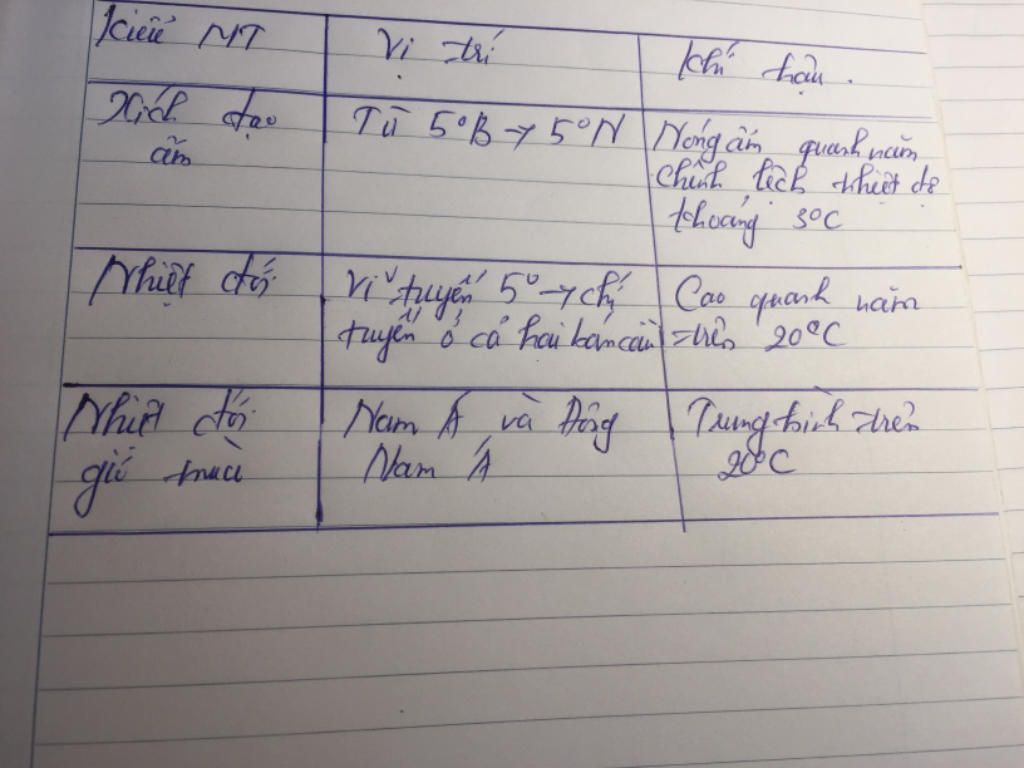 Kiểu MT
Vị trí
Khí hậu.
Xích đạo
ẩm
Từ 5°B → 5°N
Nóng ẩm quanh năm
Chênh lệch nhiệt độ
khoảng 3°C
Nhiệt đới
Vĩ tuyến 5° → chí
tuyến ở cả hai bán cầu
Cao quanh năm
trên 20°C
Nhiệt đới
gió mùa
Nam Á và Đông
Nam Á
Trung bình trên
20°C